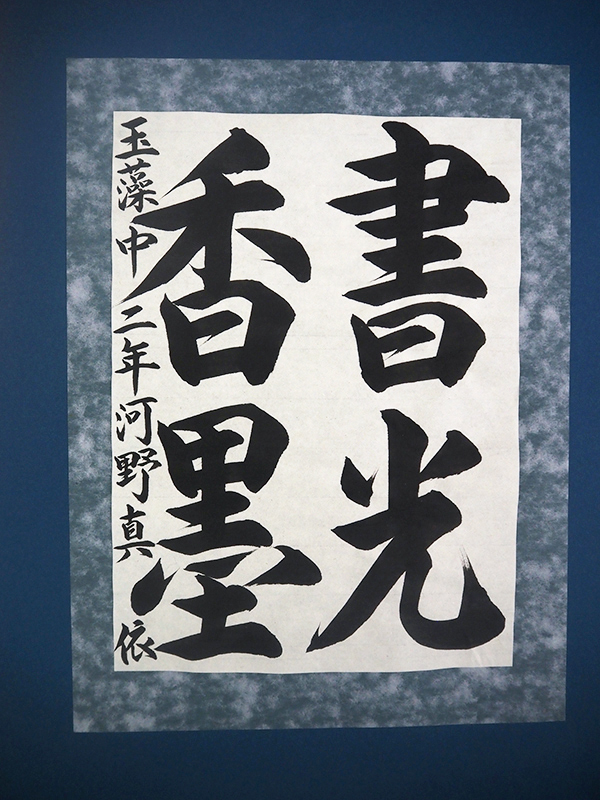 書光
香墨
玉藻中二年河野真依